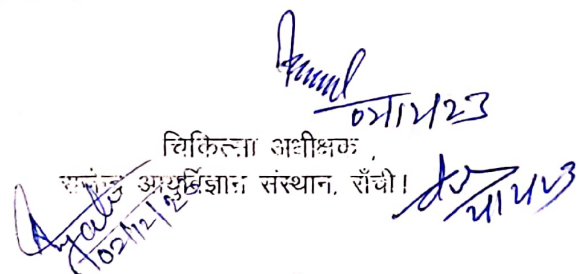 02/12/23
चिकित्सा अधीक्षक,
राजेन्द्र आयुर्विज्ञान संस्थान, राँची।
02/12/23
2/12/23